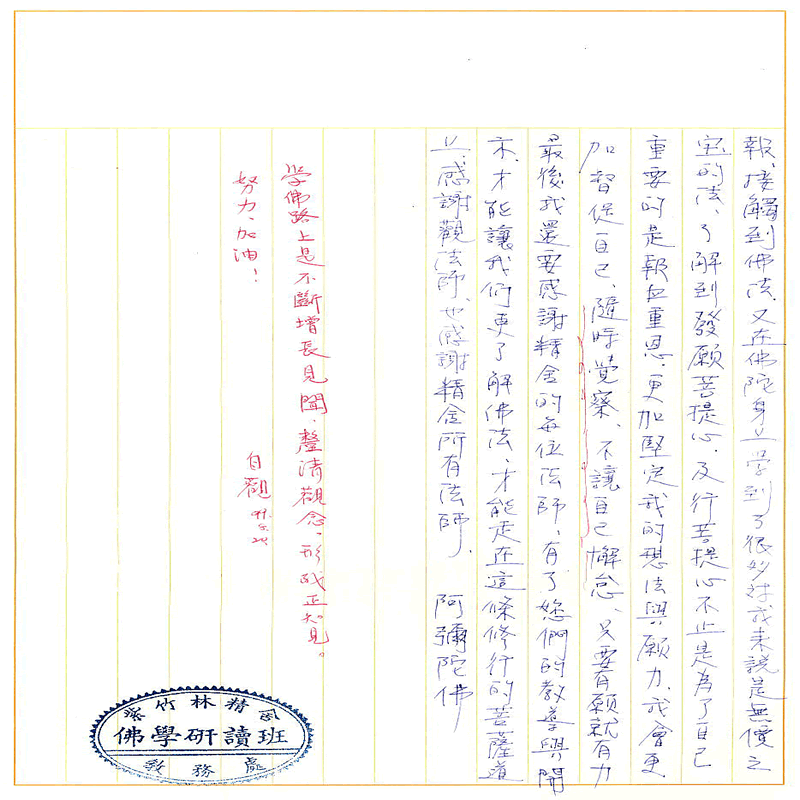 報、接觸到佛法、又在佛陀身上學到了很多對我來說是無價之
宝的法、了解到發願菩提心、及行菩提心不止是為了自己
重要的是報四重恩、更加堅定我的想法與願力、我會更
加督促自己、隨時覺察、不讓自己懈怠、只要有願就有力
最後我還要感謝精舍的每位法師、有了您們的教導與開
示、才能讓我們更了解佛法、才能走在這條修行的菩薩道
上、感謝觀法師、也感謝精舍所有法師、 阿彌陀佛
学佛路上是不斷增長見聞、釐清觀念、形成正知見。
努力、加油！
自觀
紫竹林精舍
佛學研讀班
教務處